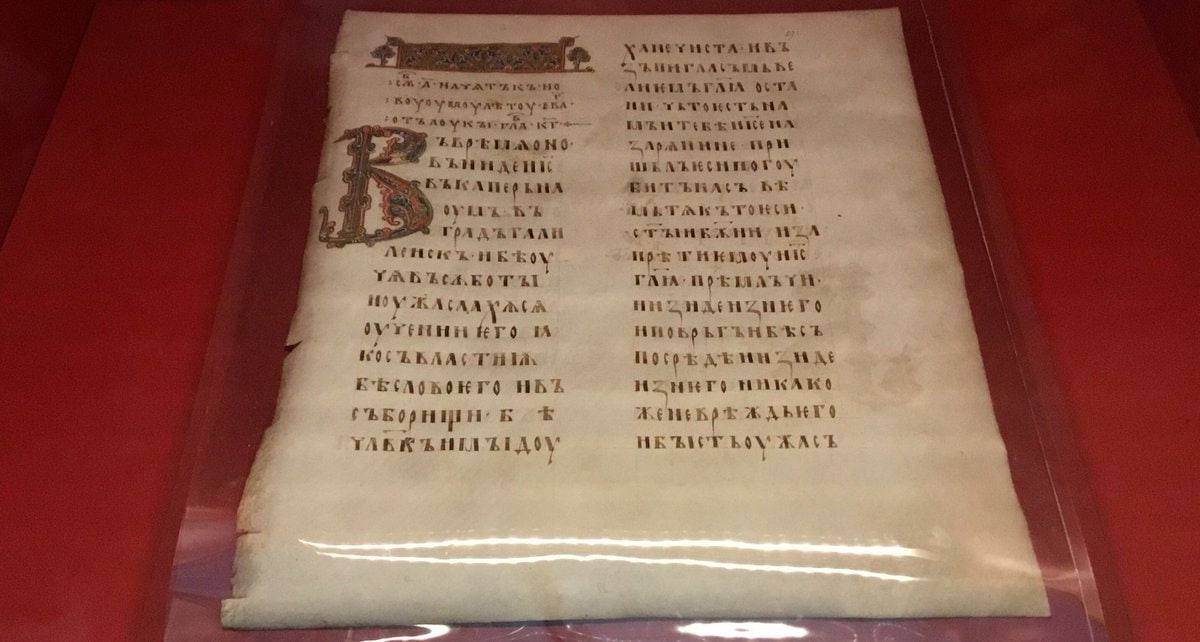 сѫ҃ · а҃ · начѧтъкъ но
воуоумоу лѣтоу · еѵа ·
отъ лоукы · гла҃ · кг҃
Въ врѣмѧ оно ·
въниде ис҃
въ каперьна
оумъ · въ
градъ гали
леискъ · и бѣ оу
чѧ въ сѫботы
и оужасаахѫсѧ
оученин ѥго ꙗ
ко съ властиѭ
бѣ слово ѥго и въ
съборищи · бѣ
чл҃вкъ имы доу
ха нечиста · и въ
зъпи гласъмь ве
ликъмь гл҃ѧ оста
ни · чьто ѥсть на
мъ и тебѣ ис҃е на
зарѧнине · при
шьлъ ѥси погоу
битъ насъ · вѣ
мь тѧ къто ѥси ·
ст҃ыи бж҃ии · и за
прѣти ѥмоу ис҃
гл҃ѧ · прѣмлъчи ·
и изиди из него
и повьргъ и бѣсъ
посрѣдѣ изиде
из него никако
же не врѣждь ѥго
и бысть оужасъ